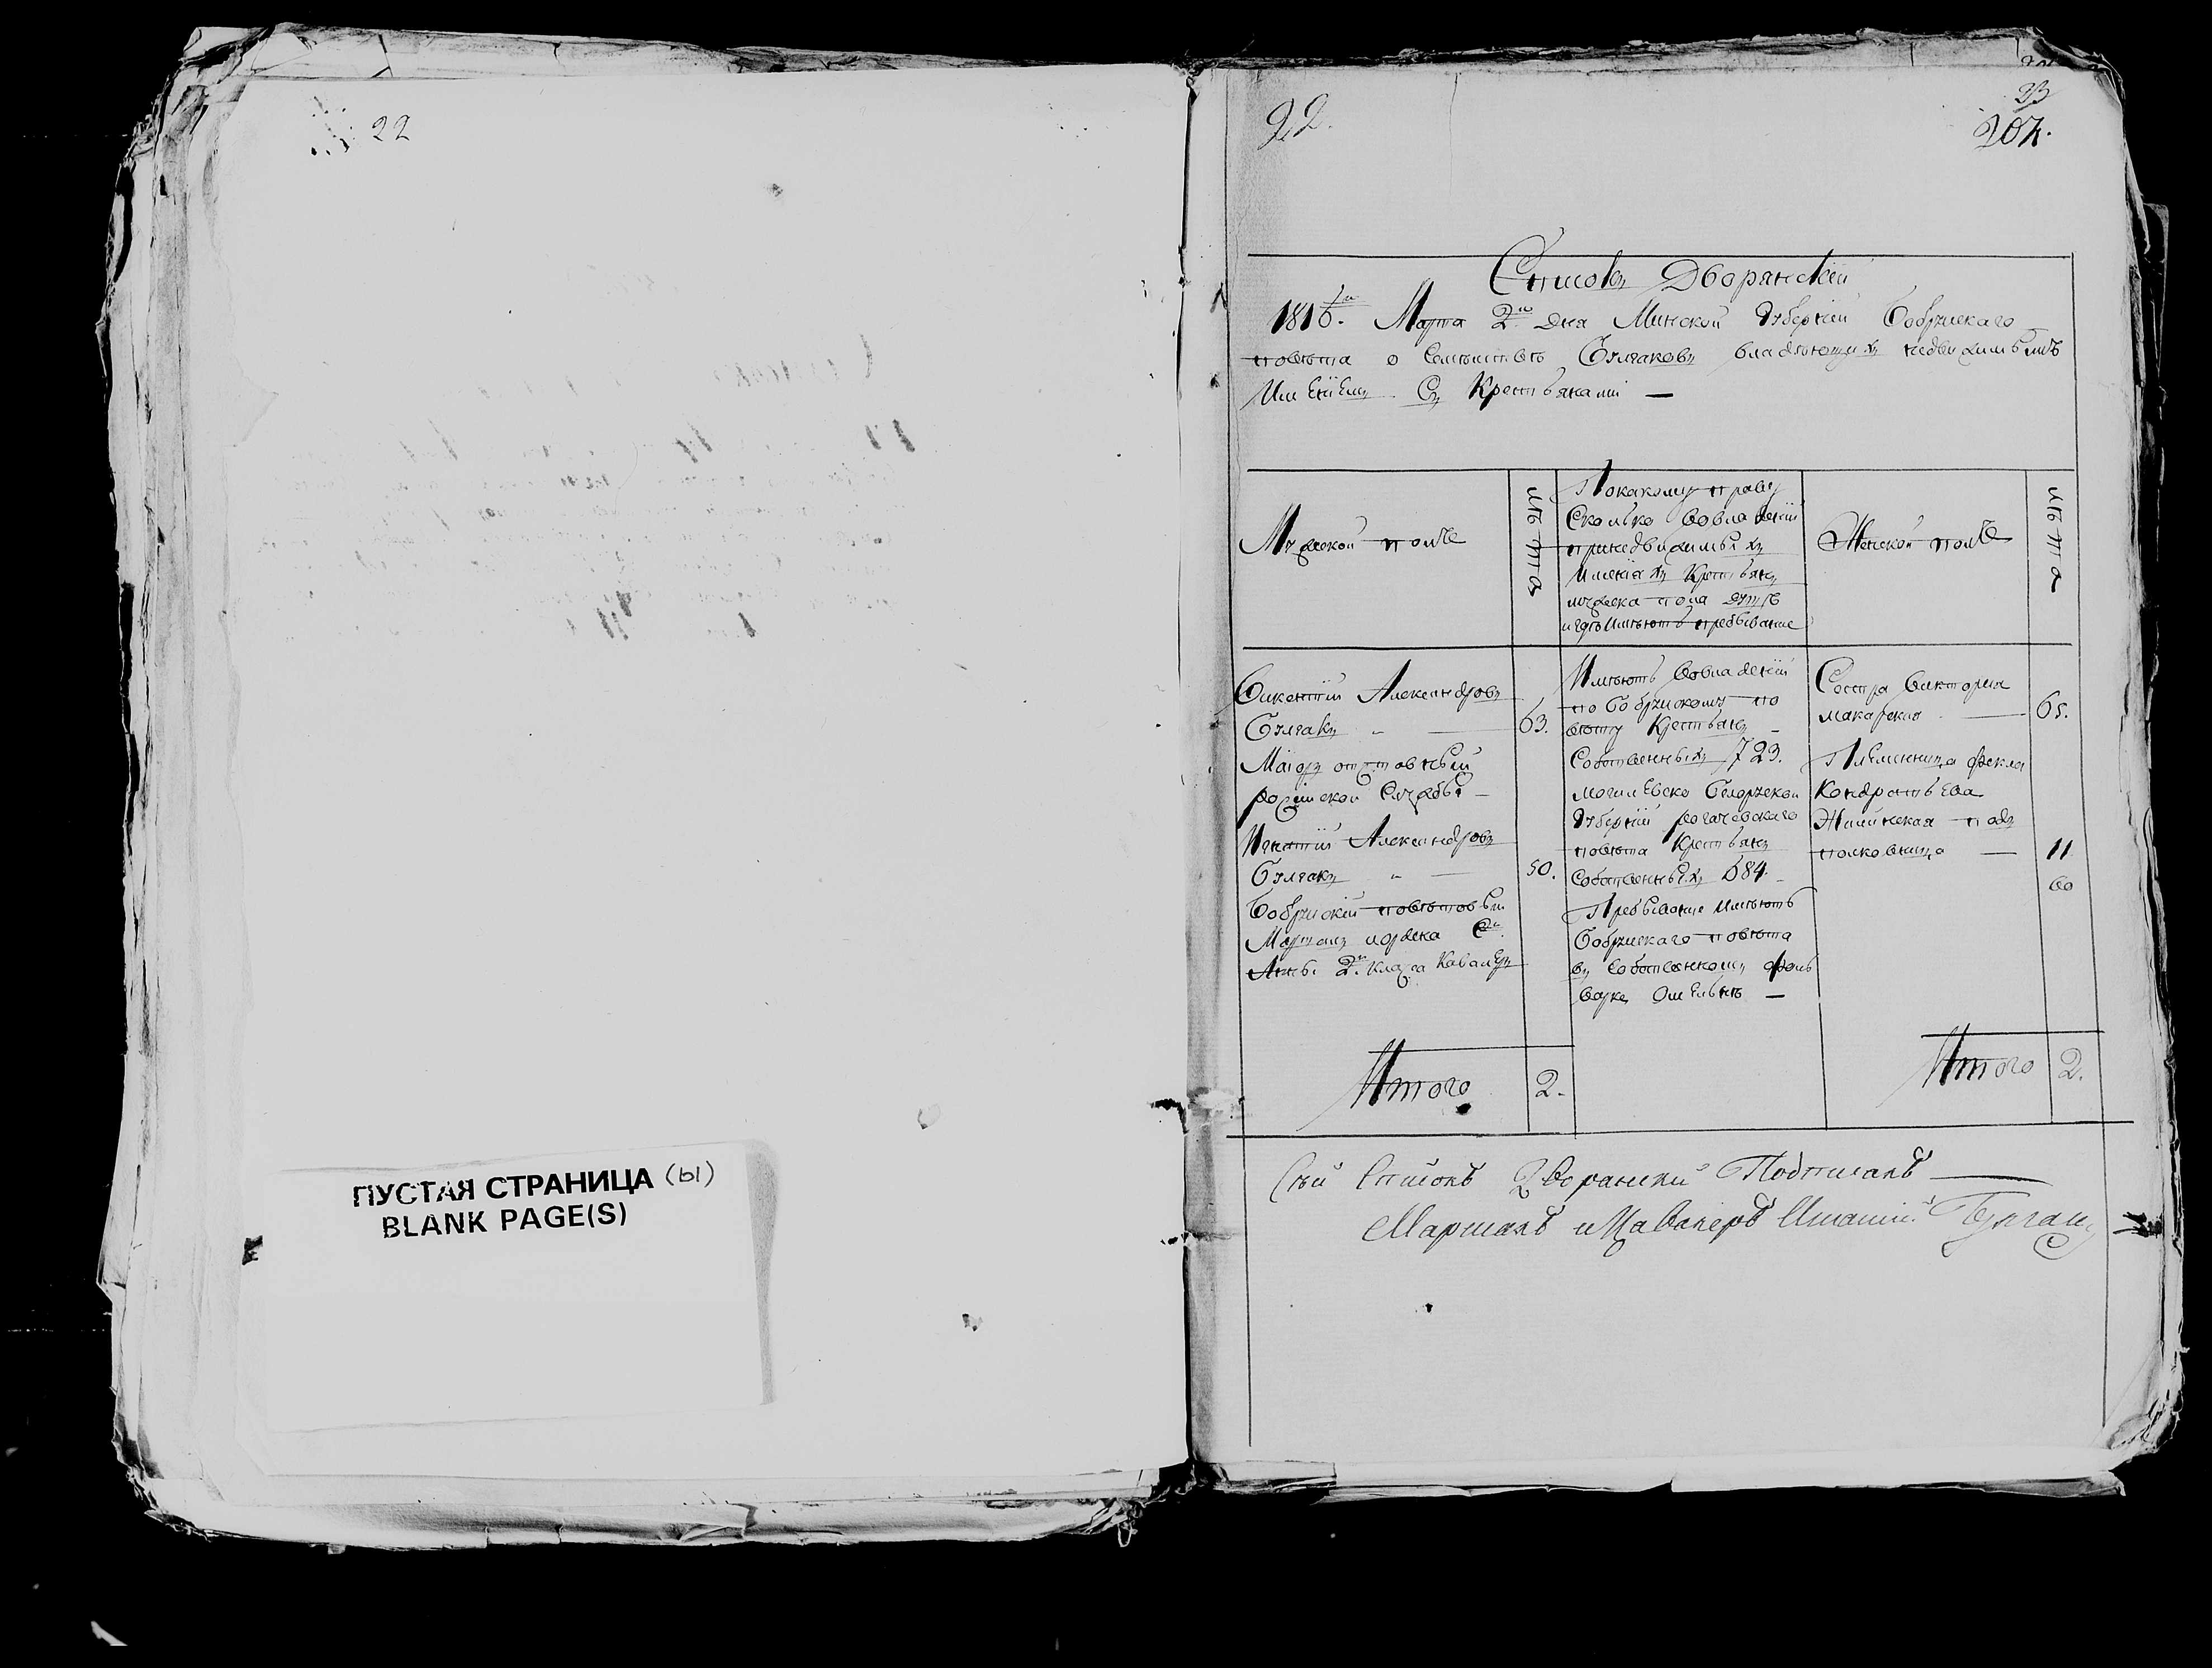 22
ПУСТАЯ СТРАНИЦА (ы)
BLANK PAGE(S)
22.
23
204.
Списокъ Дворянскій
1816.го Марта 2го Дня Минской Губерніи Бобруйскаго
повѣта о Семѣистве Булгаковъ владѣющихъ недвижимымъ
Имѣніемъ Съ Крестьянами —
Мужеской полъ
лѣта
По какому праву
Сколько вовладеніи
принедвижимыхъ
Имѣніахъ Крестьянъ
мужеска пола душъ
и гдѣ Имѣютъ пребываніе
Женской полъ
лѣта
Викентій Александровъ
Булгакъ — 63.
Маіоръ отставный
російской Службы —
Игнатій Александровъ
Булгакъ — 50.
Бобруйскій повѣтовый
Маршалъ иордена Стй
Анны 2го класа Кавалеръ
Имѣютъ вовладеніи
по Бобруйскому по
вѣту Крестьянъ
Собственныхъ 723.
Могилевско Белоруской
Губерніи рогачевскаго
повѣта Крестьянъ
Собственныхъ 684.
Пребываніе Имѣютъ
Бобруйскаго повѣта
въ Собственномъ фоль
варке Омельнѣ —
Сестра Викторія
макарска — 65.
Племенница Фекла
Кондратьева
Жилинская подъ
полковница — 11
Итого 2.
Итого 2.
Сей Списокъ Дворянски Подписалъ —
Маршалъ и Кавалеръ Игнатій Булгакъ